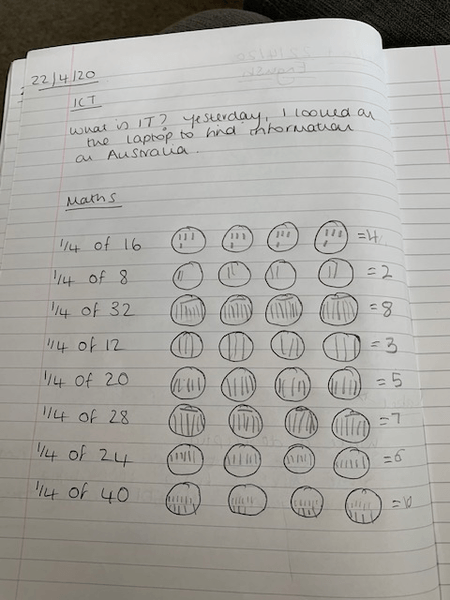 22/4/20
ICT
What is IT? Yesterday, I looked on
the laptop to find information
on Australia.
Maths
1/4 of 16 =4
1/4 of 8 =2
1/4 of 32 =8
1/4 of 12 =3
1/4 of 20 =5
1/4 of 28 =7
1/4 of 24 =6
1/4 of 40 =